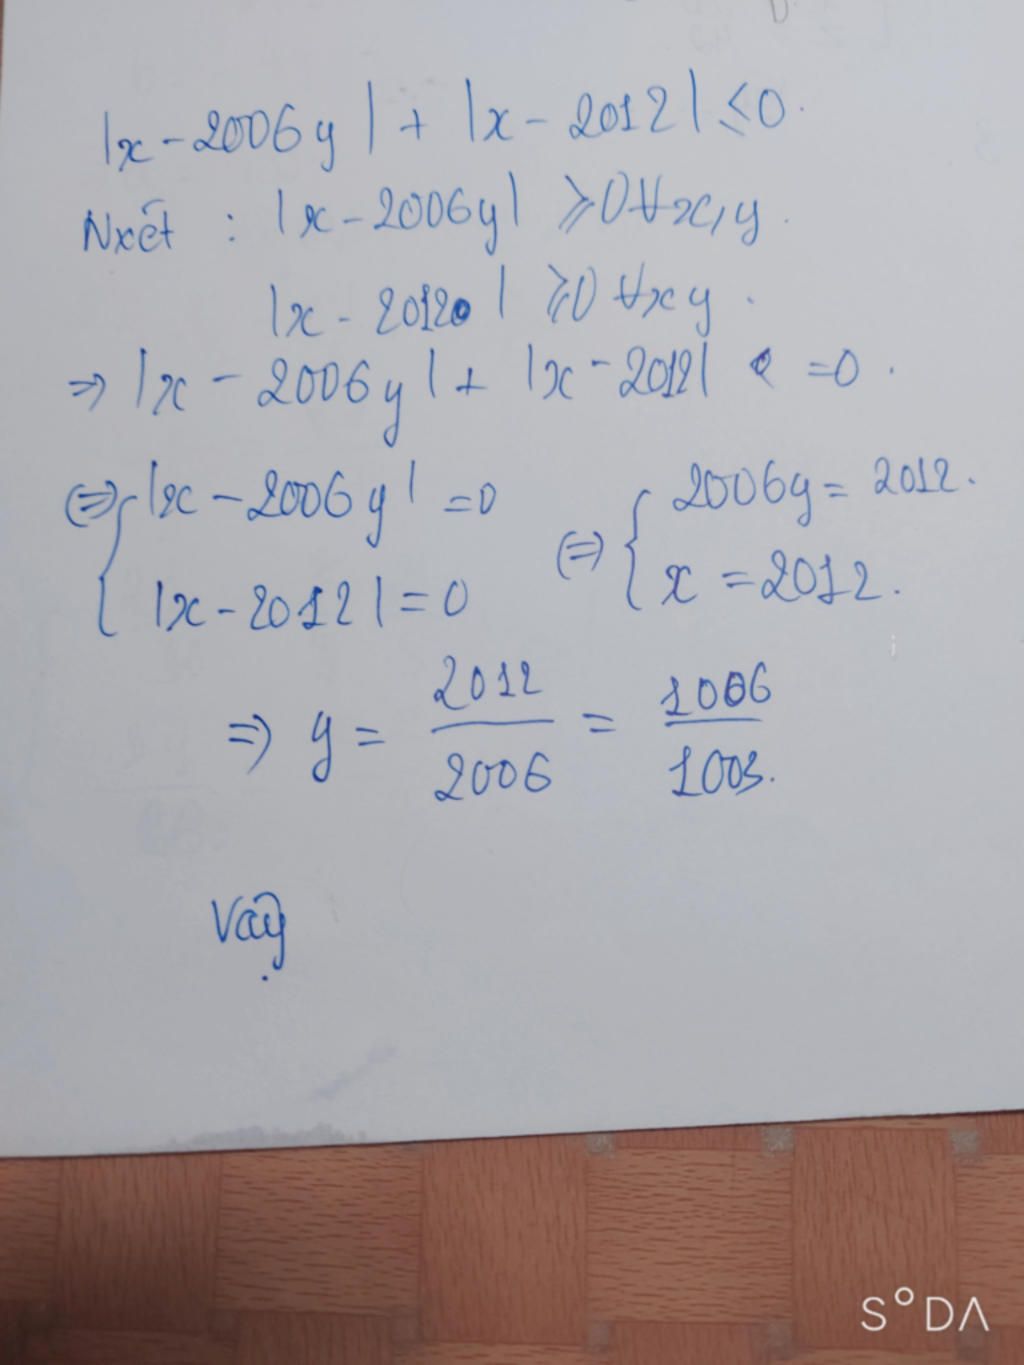 |x - 2006y| + |x - 2012| ≤ 0.
Nxết : |x - 2006y| ⩾ 0 ∀x,y.
|x - 2012| ⩾ 0 ∀x y.
⇒ |x - 2006y| + |x - 2012| = 0.
⇔ { |x - 2006y| = 0
|x - 2012| = 0
⇔ { 2006y = 2012.
x = 2012.
⇒ y = 2012/2006 = 1006/1003.
Vậy
S°DA